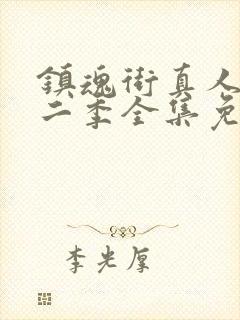 鎮魂街真人
二季全集免
李光厚